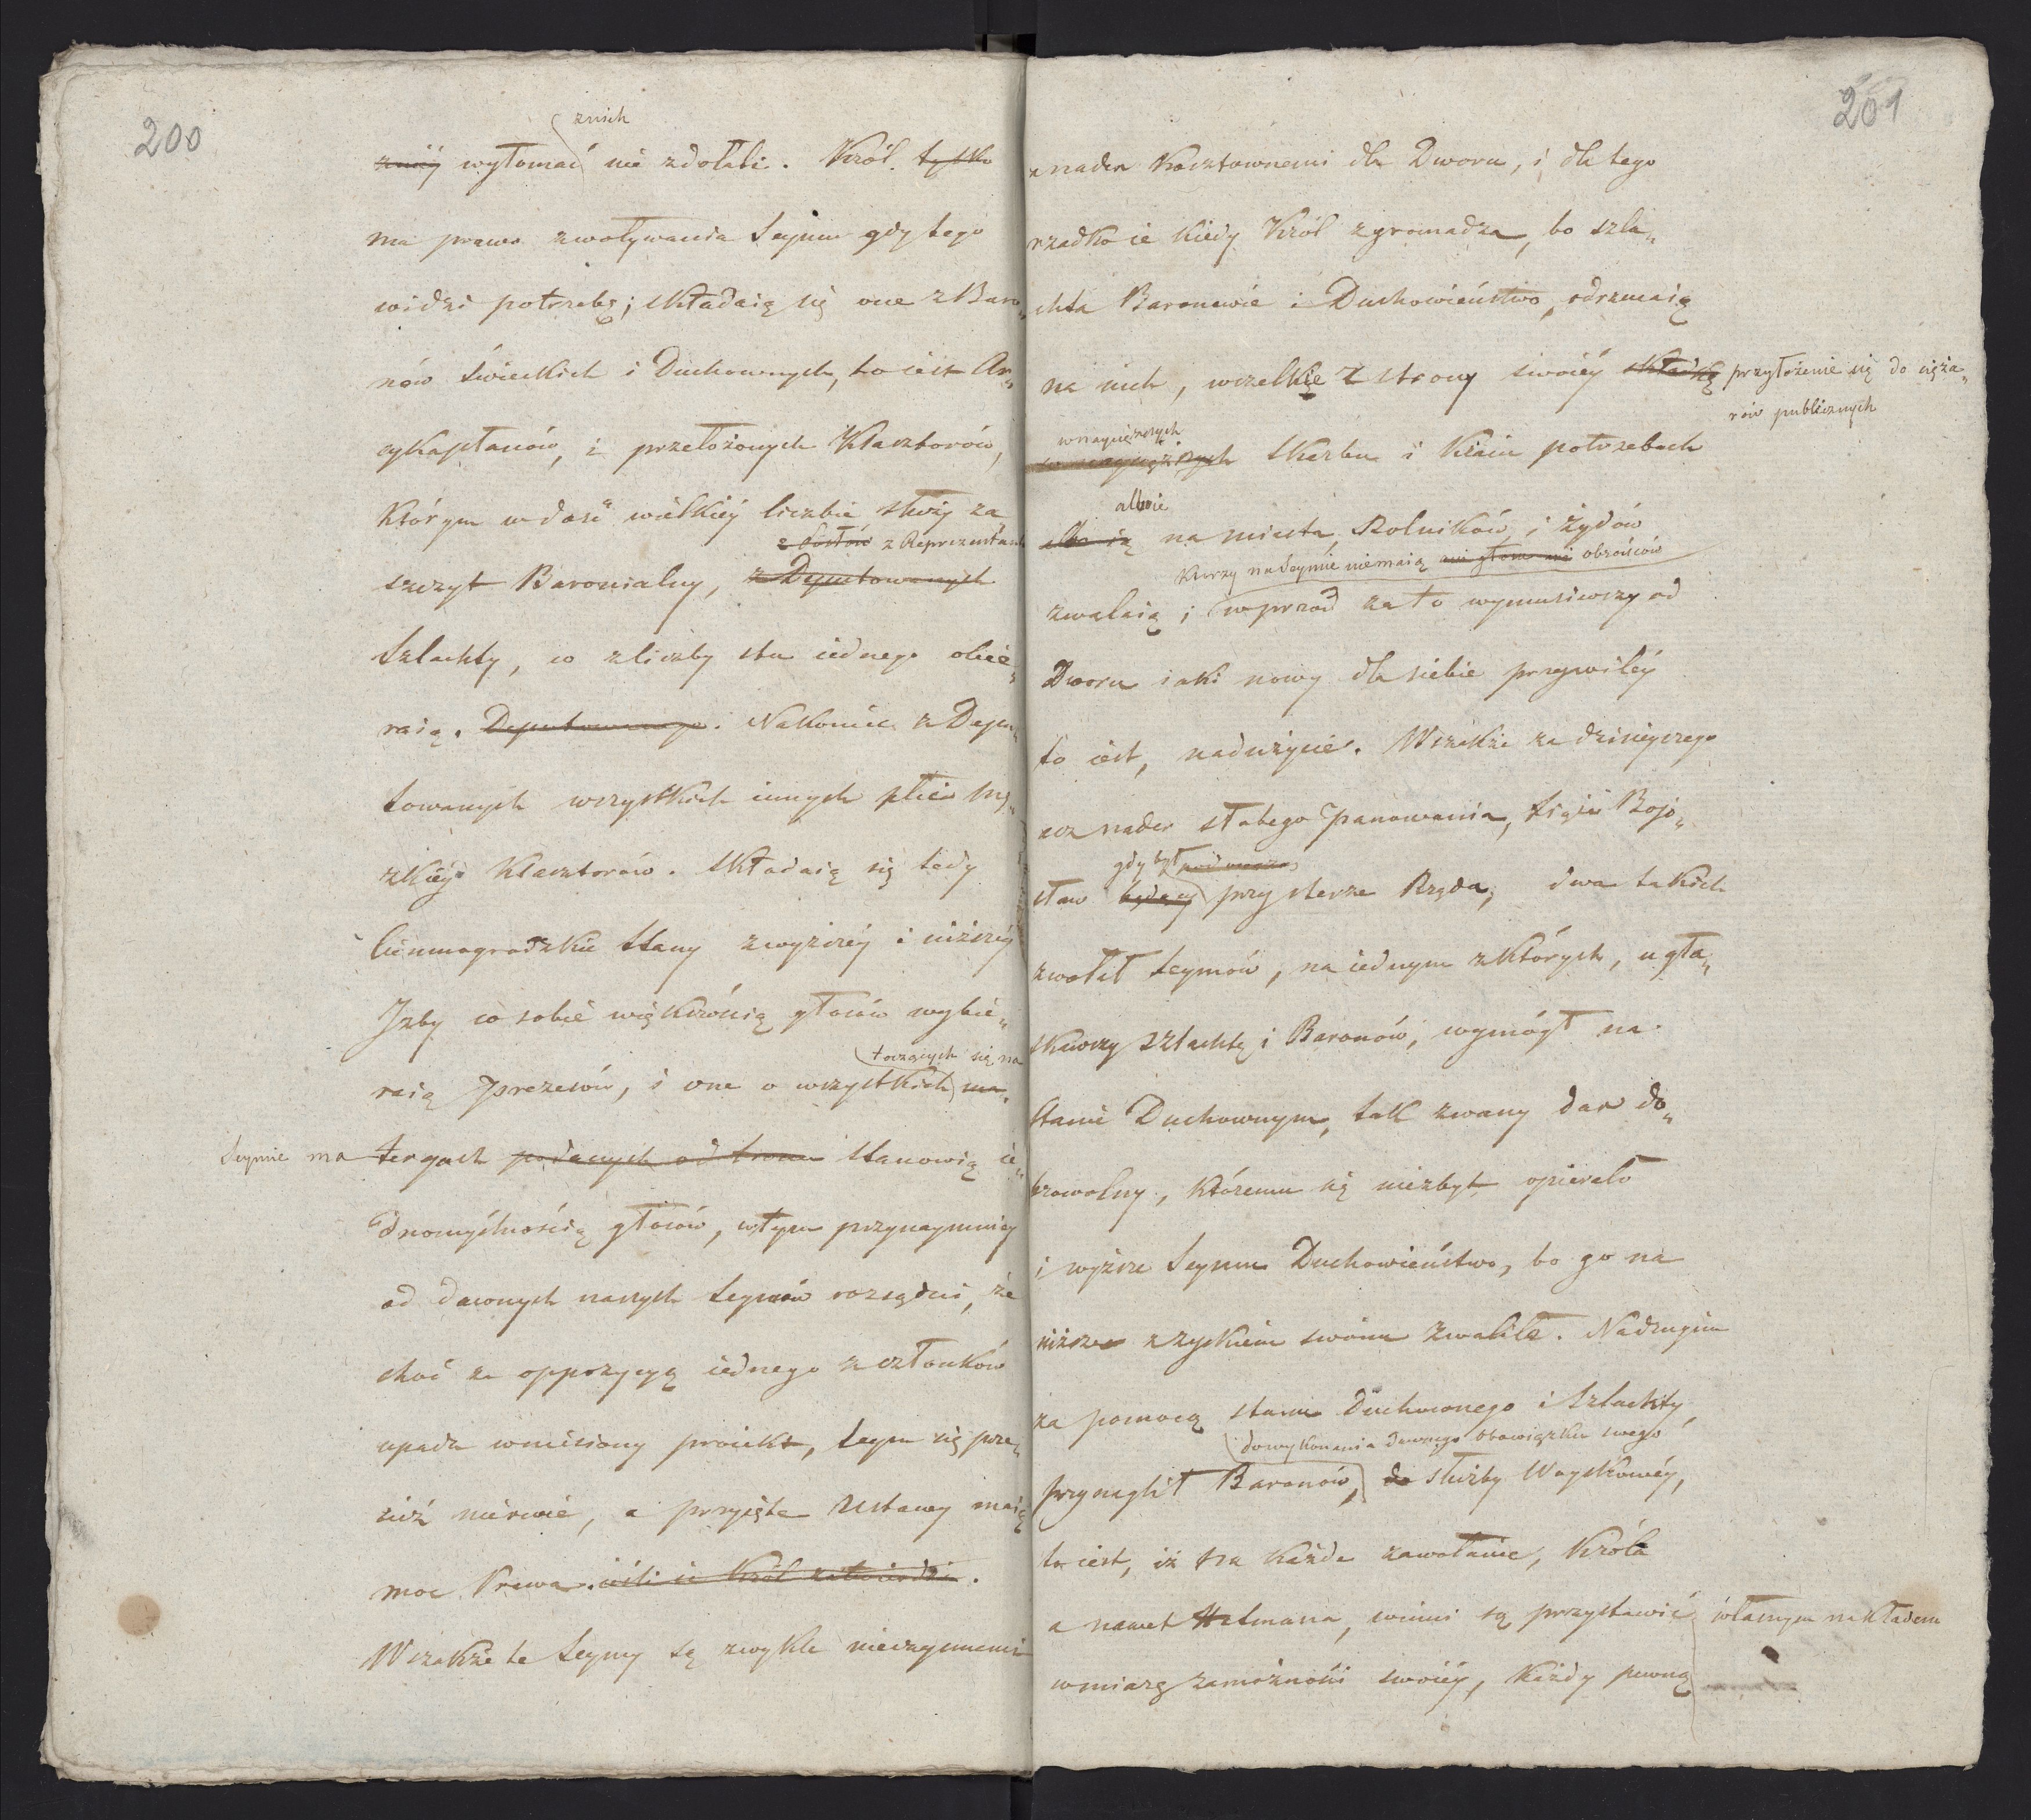 200
znich
zniéy wyłomać nie zdołali. Król tylko
ma prawo zwoływania Seymu gdy tego
widzi potrzebę; składaią się one z Baro„
nów świeckich i Duchownych, to iest Ar„
cykapłanów, i przełożonych Klasztorów,
którym w dość wielkiéy liczbie służy za
z Posłów z Reprezentant
szczyt Baronialny, z Deputowanych
Szlachty, co z liczby stu iednego obie„
raią. Deputowanego. Nakoniec z Depu
towanych wszystkich innych płci mę„
zkiéy Klasztorów. Składaią się tedy
Ciemnogrodzkie Stany z wyższéy i niższéy
Jzby co sobie większością głosów wybie„
toczących się na
raią Prezesów, i one o wszystkich ma„
Seymie ma teryach podanych od tronu stanowią ie„
dnomyślnością głosów, w tym przynaymniéy
od dawnych naszych Seymów rozsądni, że
choć za oppozycyą iednego z członków
upada wniesiony proiekt, Seym się prze„
cież nierwie, a przyięte Ustawy maią
moc Prawa. ieśli ie Król zatwierdzi.
Wszakże te Seymy są zwykle nieczynnemi
201
a nader kosztownemi dla Dworu, i dla tego
rzadko ie kiedy Król zgromadza, bo szla„
chta Baronowie i Duchowieństwo, odrzucaią
na nich, wszelkie z strony swoiéy składkę przyłożenie się do cięża„
rów publicznych
w naycięższych
w naycięższych Skarbu i Kraiu potrzebach
albo ie
albo ią na miasta, Rolników, i Żydów
którzy na Seymie niemaią ani głosu ani obrońców
zwalaią; wprzód za to wymusiwszy od
Dworu iaki nowy dla siebie przywiléy
to iest, nadużycie. Wszakże za dzisieyszego
acz nader słabego Panowania, Xiąże Bojo„
gdy był
sław będący przy sterze Rządu, dwa takich
zwołał Seymów, na iednym z których, ugła„
skawszy szlachtę i Baronów, wymógł na
Stanie Duchownym, tak zwany dar do„
browolny, któremu się niezbyt opierało
i wyższe Seymu Duchowieństwo, bo go na
niższe z zyskiem swoim zwaliło. Na drugim
za pomocą stanu Duchownego i Szlachty,
do wykonania dawnego obowiązku swego
przynaglił Baronów, do służby Woyskowéy,
to iest, iż na każde zawołanie, Króla
a nawet Hetmana, winni są przystawić własnym nakładem
w miarę zamożności swoiéy, każdy pewną